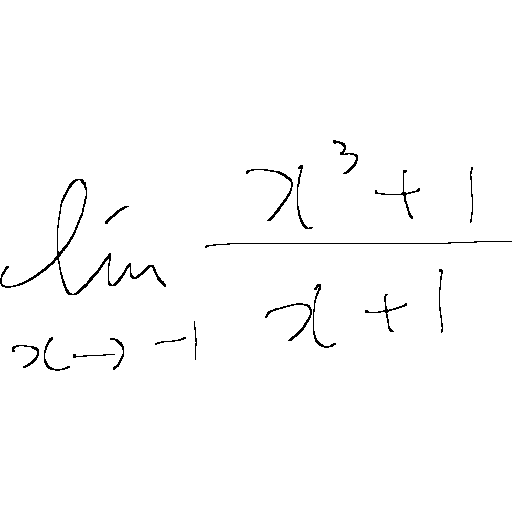 \lim_{x \to -1} \frac{x^3+1}{x+1}